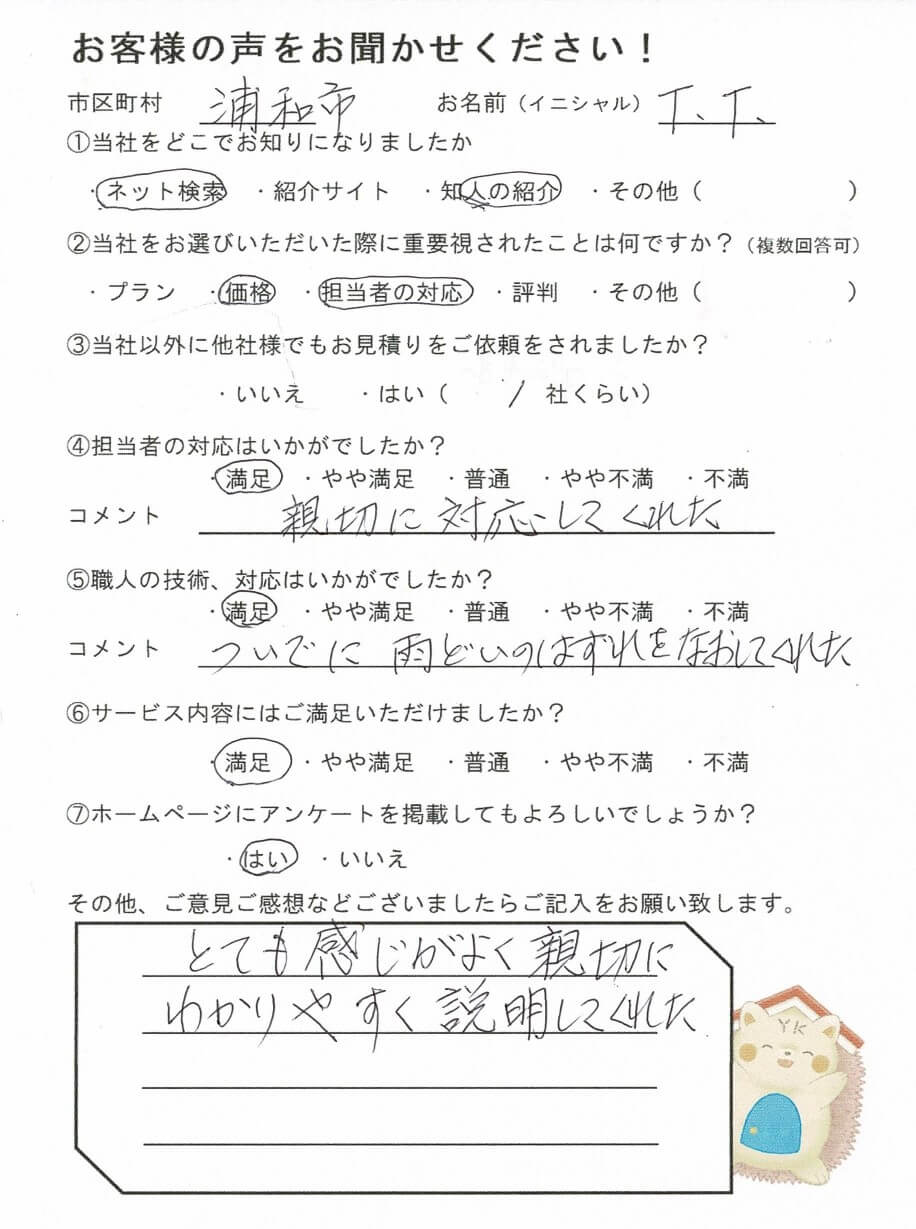 お客様の声をお聞かせください！
市区町村 浦和市 お名前（イニシャル） T、T、
①当社をどこでお知りになりましたか
・ネット検索 ・紹介サイト ・知人の紹介 ・その他（ ）
②当社をお選びいただいた際に重要視されたことは何ですか？（複数回答可）
・プラン ・価格 ・担当者の対応 ・評判 ・その他（ ）
③当社以外に他社様でもお見積りをご依頼をされましたか？
・いいえ ・はい（ / 社くらい）
④担当者の対応はいかがでしたか？
・満足 ・やや満足 ・普通 ・やや不満 ・不満
コメント 親切に対応してくれた
⑤職人の技術、対応はいかがでしたか？
・満足 ・やや満足 ・普通 ・やや不満 ・不満
コメント ついでに雨どいのはずれをなおしてくれた
⑥サービス内容にはご満足いただけましたか？
・満足 ・やや満足 ・普通 ・やや不満 ・不満
⑦ホームページにアンケートを掲載してもよろしいでしょうか？
・はい ・いいえ
その他、ご意見ご感想などございましたらご記入をお願い致します。
とても感じがよく親切に
わかりやすく説明してくれた
YK